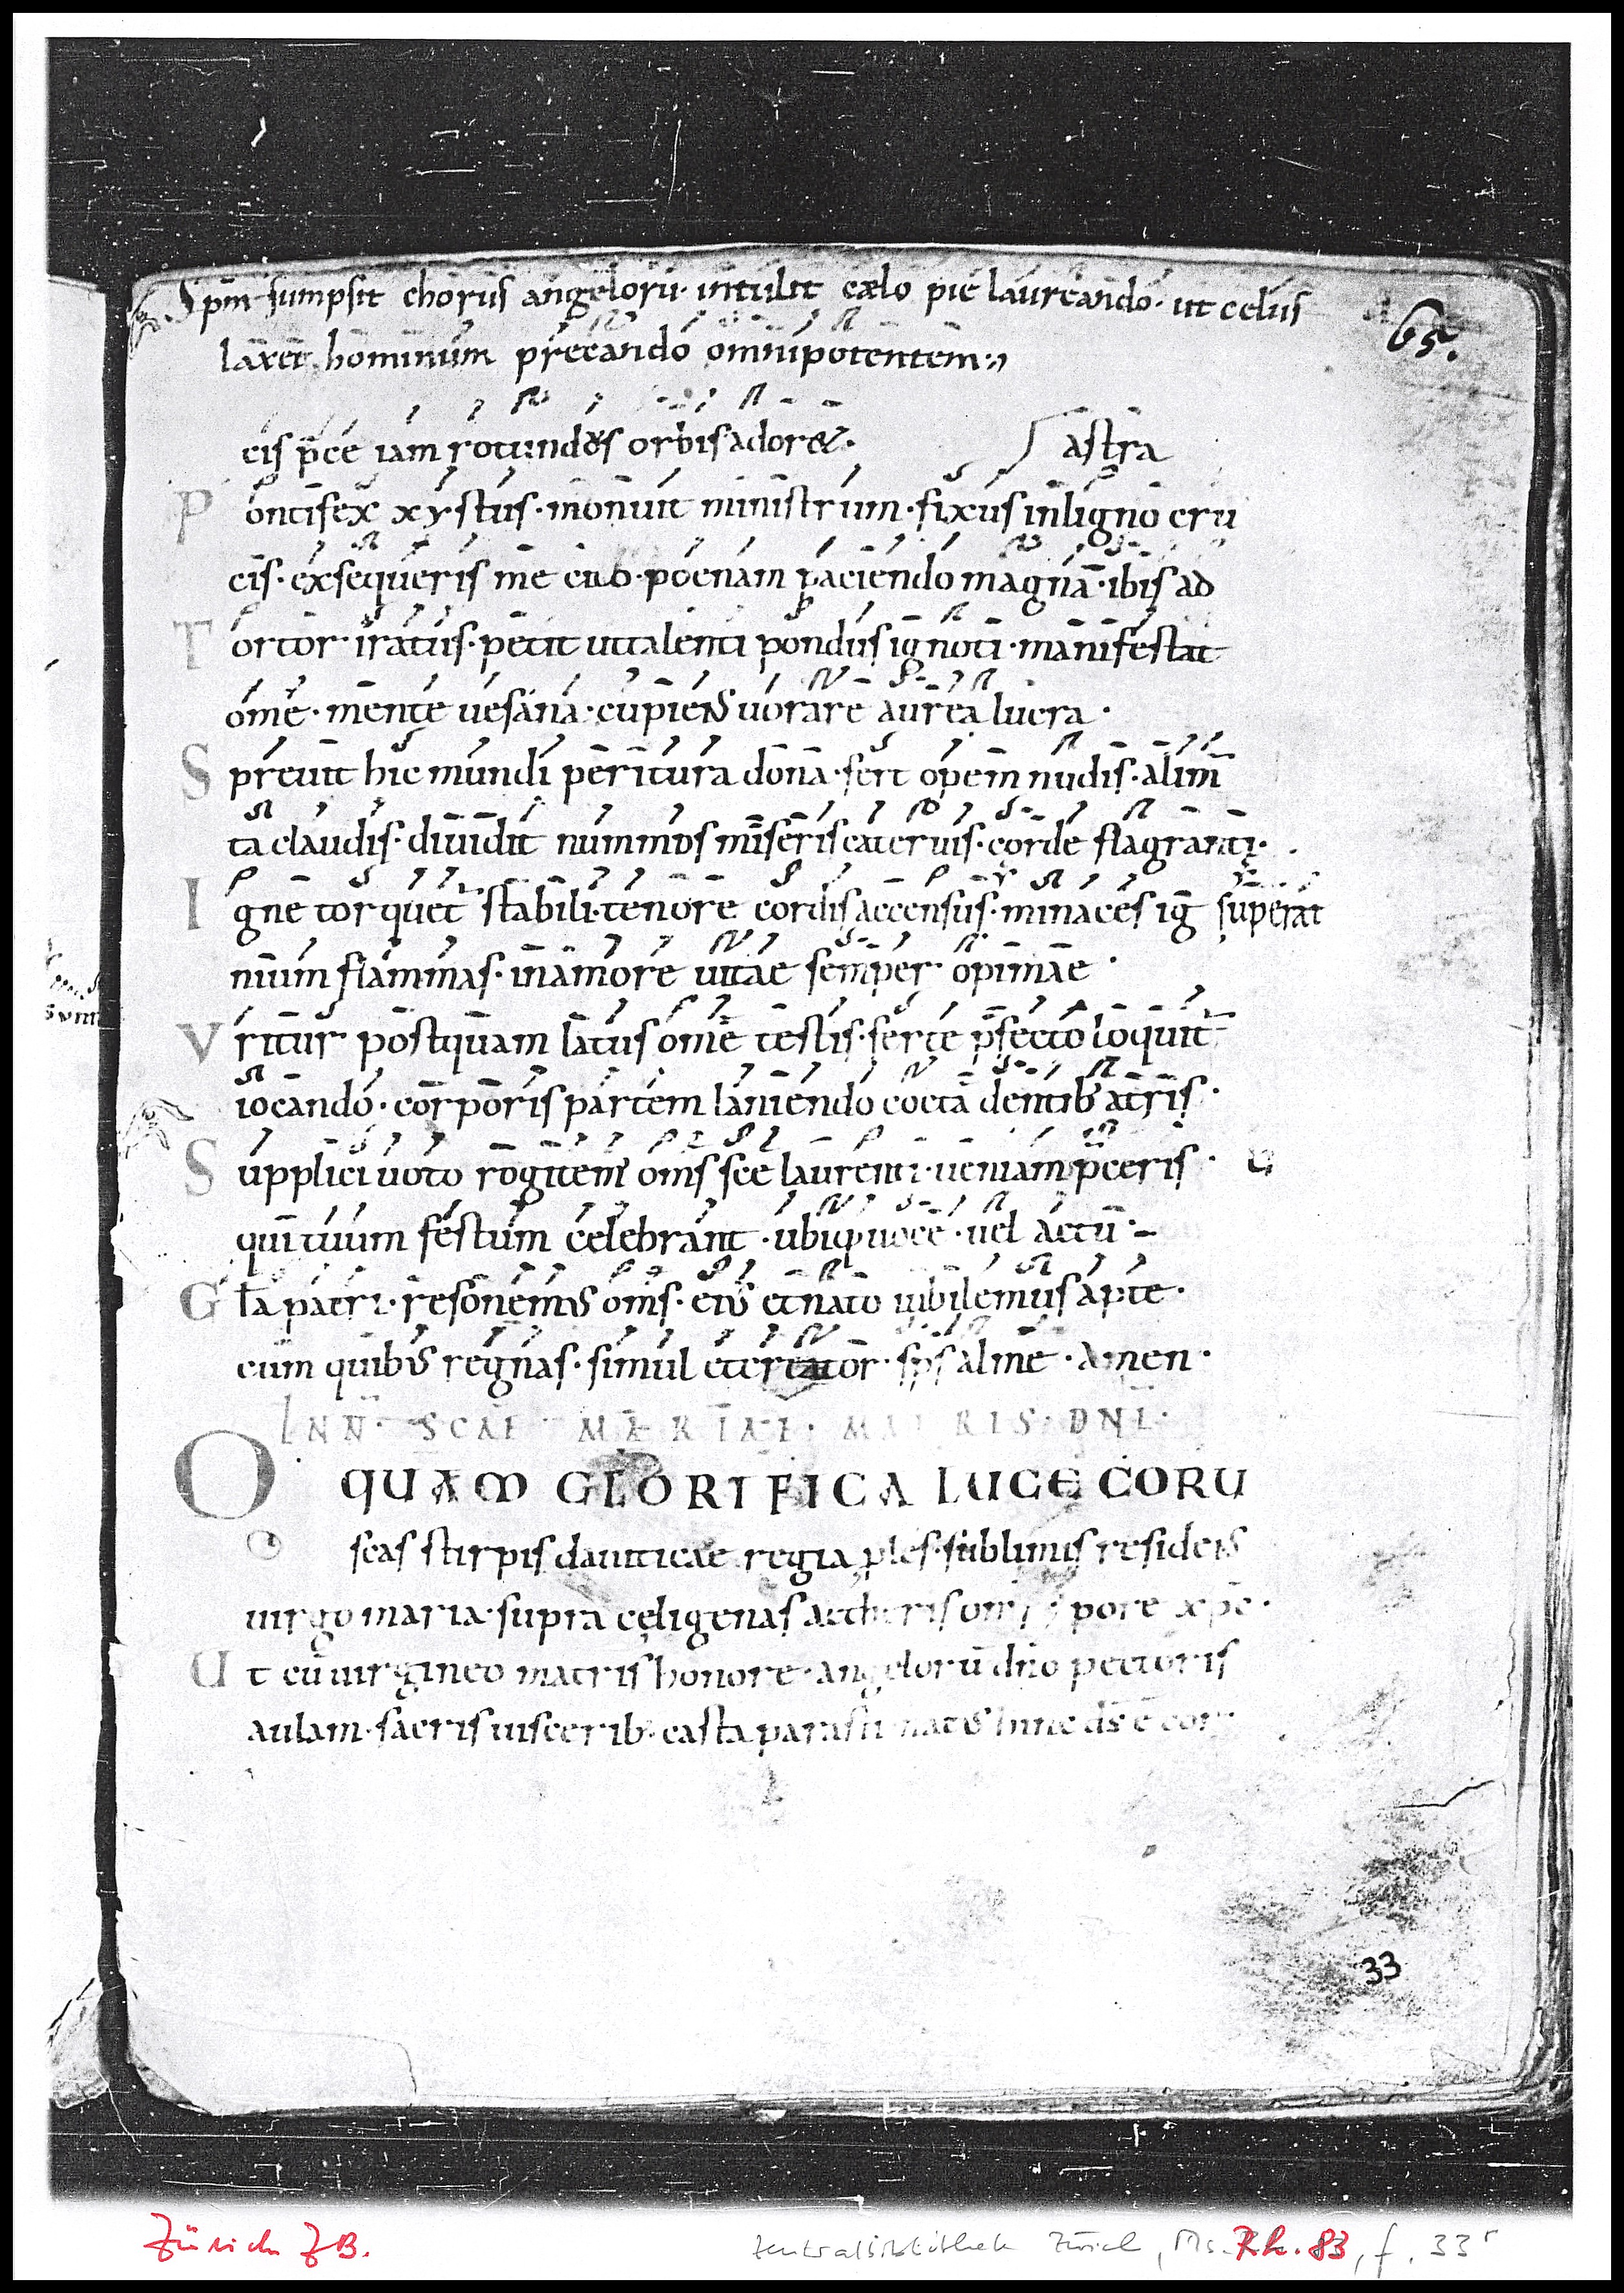 Spm sumpsit chorus angeloru· intulit cælo pie laureando· ut celus
laxet hominum precando omnipotentem
65.
cis p̄ce iam rotundus orbis ador&·
astra
P ontifex xystus· monuit ministrum· fixus inligno cru
cis· exsequeris me cito· poenam paciendo magnā· ibis ad
T ortor· iratus· petit ut talenti pondus ignoti· manifestat
om̄e· mente uesana· cupiens uorare aurea lucra·
S preuit hic mundi peritura dona· fert opem nudis· alim̄
ta claudis· diuidit nummos miseris cateruis· corde flagranti·
I gne torquet̄ stabili· tenore cordis accensus· minaces ig superat
nium flammas· in amore uitae semper opimae·
V ritur postquam latus om̄e testis· ferte p̄fecto loquit̄
iocando· corporis partem laniendo cocta dentib; atris·
S upplici uoto rogitem; om̄s sc̄e laurenti· ueniam p̄ceris·
qui tuum festum celebrant· ubiq; uoce· uel actū·
G l̄a patri· resonemus om̄s· eius et nato iubilemus apte·
cum quibus regnas· simul et creator· sp̄s alme· amen·
INN· SCAE MARIAE· MATRIS· DNI·
O QUAM GLORIFICA LUCE CORU
scas stirpis dauiticae regia ples· sublimis residens
uirgo maria· supra cęligenas aetheris om̄s
U t cū uirgineo matris honore· angelorū dn̄o pectoris
aulam· sacris uiscerib· casta parasti natus hinc ds̄ ē cor
33
Zürich ZB.
Zentralbibliothek Zürich, Ms. Rh. 83, f. 33r